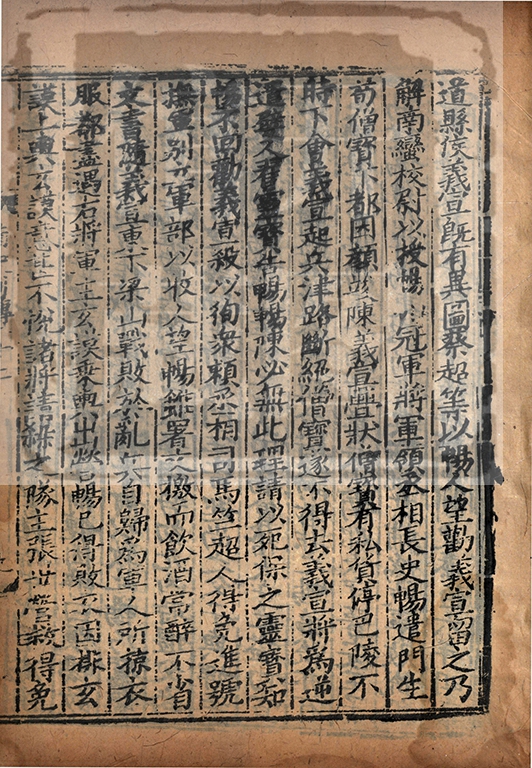 道縣侯義宣既有異圖蔡超等以暢人望勸義宣留之乃
解南蠻校尉以授暢加冠軍將軍領丞相長史暢遣門生
荀僧寶下都因顏竣陳義宣釁狀僧寶有私貨停巴陵不
時下會義宣起兵津路斷絕僧寶遂不得去義宣將為逆
遣嬖人翟靈寶告暢暢陳必無此理請以死保之靈寶知
暢不回勸義宣殺以徇眾賴丞相司馬竺超人得免進號
撫軍別立軍部以收人望暢雖署文檄而飲酒常醉不省
文書隨義宣東下梁山戰敗於亂兵自歸為軍人所掠衣
服都盡遇右將軍王玄謨乘輿出營暢已得敗衣因排玄
謨上輿玄謨意甚不悅諸將請殺之隊主張世營救得免